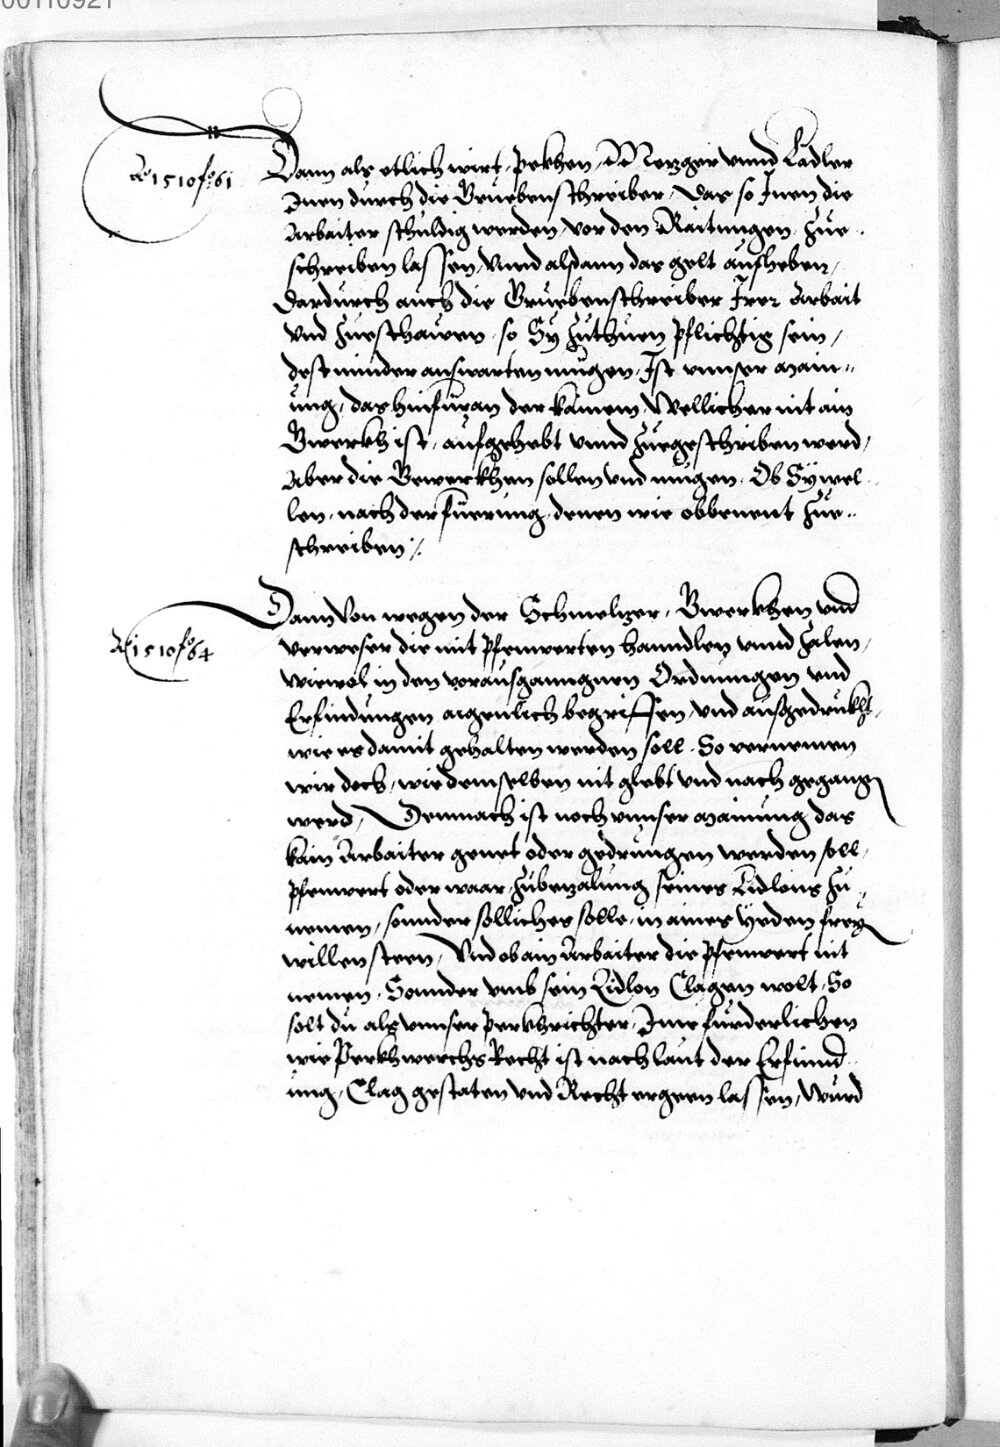 00110921
Ao 1510 fo: 61
Dann als etlich wirt, Pekhen, Metzger unnd Ladler
Inen durch die Gruebenschreiber, Das so Inen die
Arbaiter schuldig werden, vor den Raitungen, Zue-
schreiben lassen, Unnd alsdann das gelt aufheben,
Dardurch auch die Gruebenschreiber Irer Arbait
und Zueschauen, so Sy Zuthuen pflichtig sein,
dest minder auswarten mugen, Ist unnser main-
ung, das hinfuran der kainem, Wellicher nit ain
Gwerkh ist, aufgehebt unnd Zuegeschriben werd,
Aber die Gewerkhen sollen und mugen, Ob Sy wel-
len, nach der fuerung, denen wie obbenent Zue-
schreiben /.
Ao 1510 fo 64
Dann Von wegen der Schmeltzer, Gwerkhen und
Verweser die mit Pfenwerten hanndlen unnd Zalen,
Wiewol in den vorausganngnen Ordnungen und
Erfindungen aigenlich begriffen, und ausgedrukht,
wie es damit gehalten werden soll, So vernemen
wir doch, wie demselben nit glebt und nach gegangen
werd, Demnach ist noch unnser mainung das
kain Arbaiter genet oder gedrungen werden soll,
Pfenwert oder waar, Zubezalung seines Lidlons Zu-
nemen, sonnder sölliches solle, in aines yeden frey
willen steen, Und ob ain Arbaiter die Pfenwert nit
nemen, Sonnder umb sein Lidlon Clagen wolt, So
solt du als unnser Perkhrichter, Ime furderlichen
wie Perkhwerchs Recht ist nach laut der Erfinnd-
ung, Clag gestaten und Recht ergeen lassen, Wurd